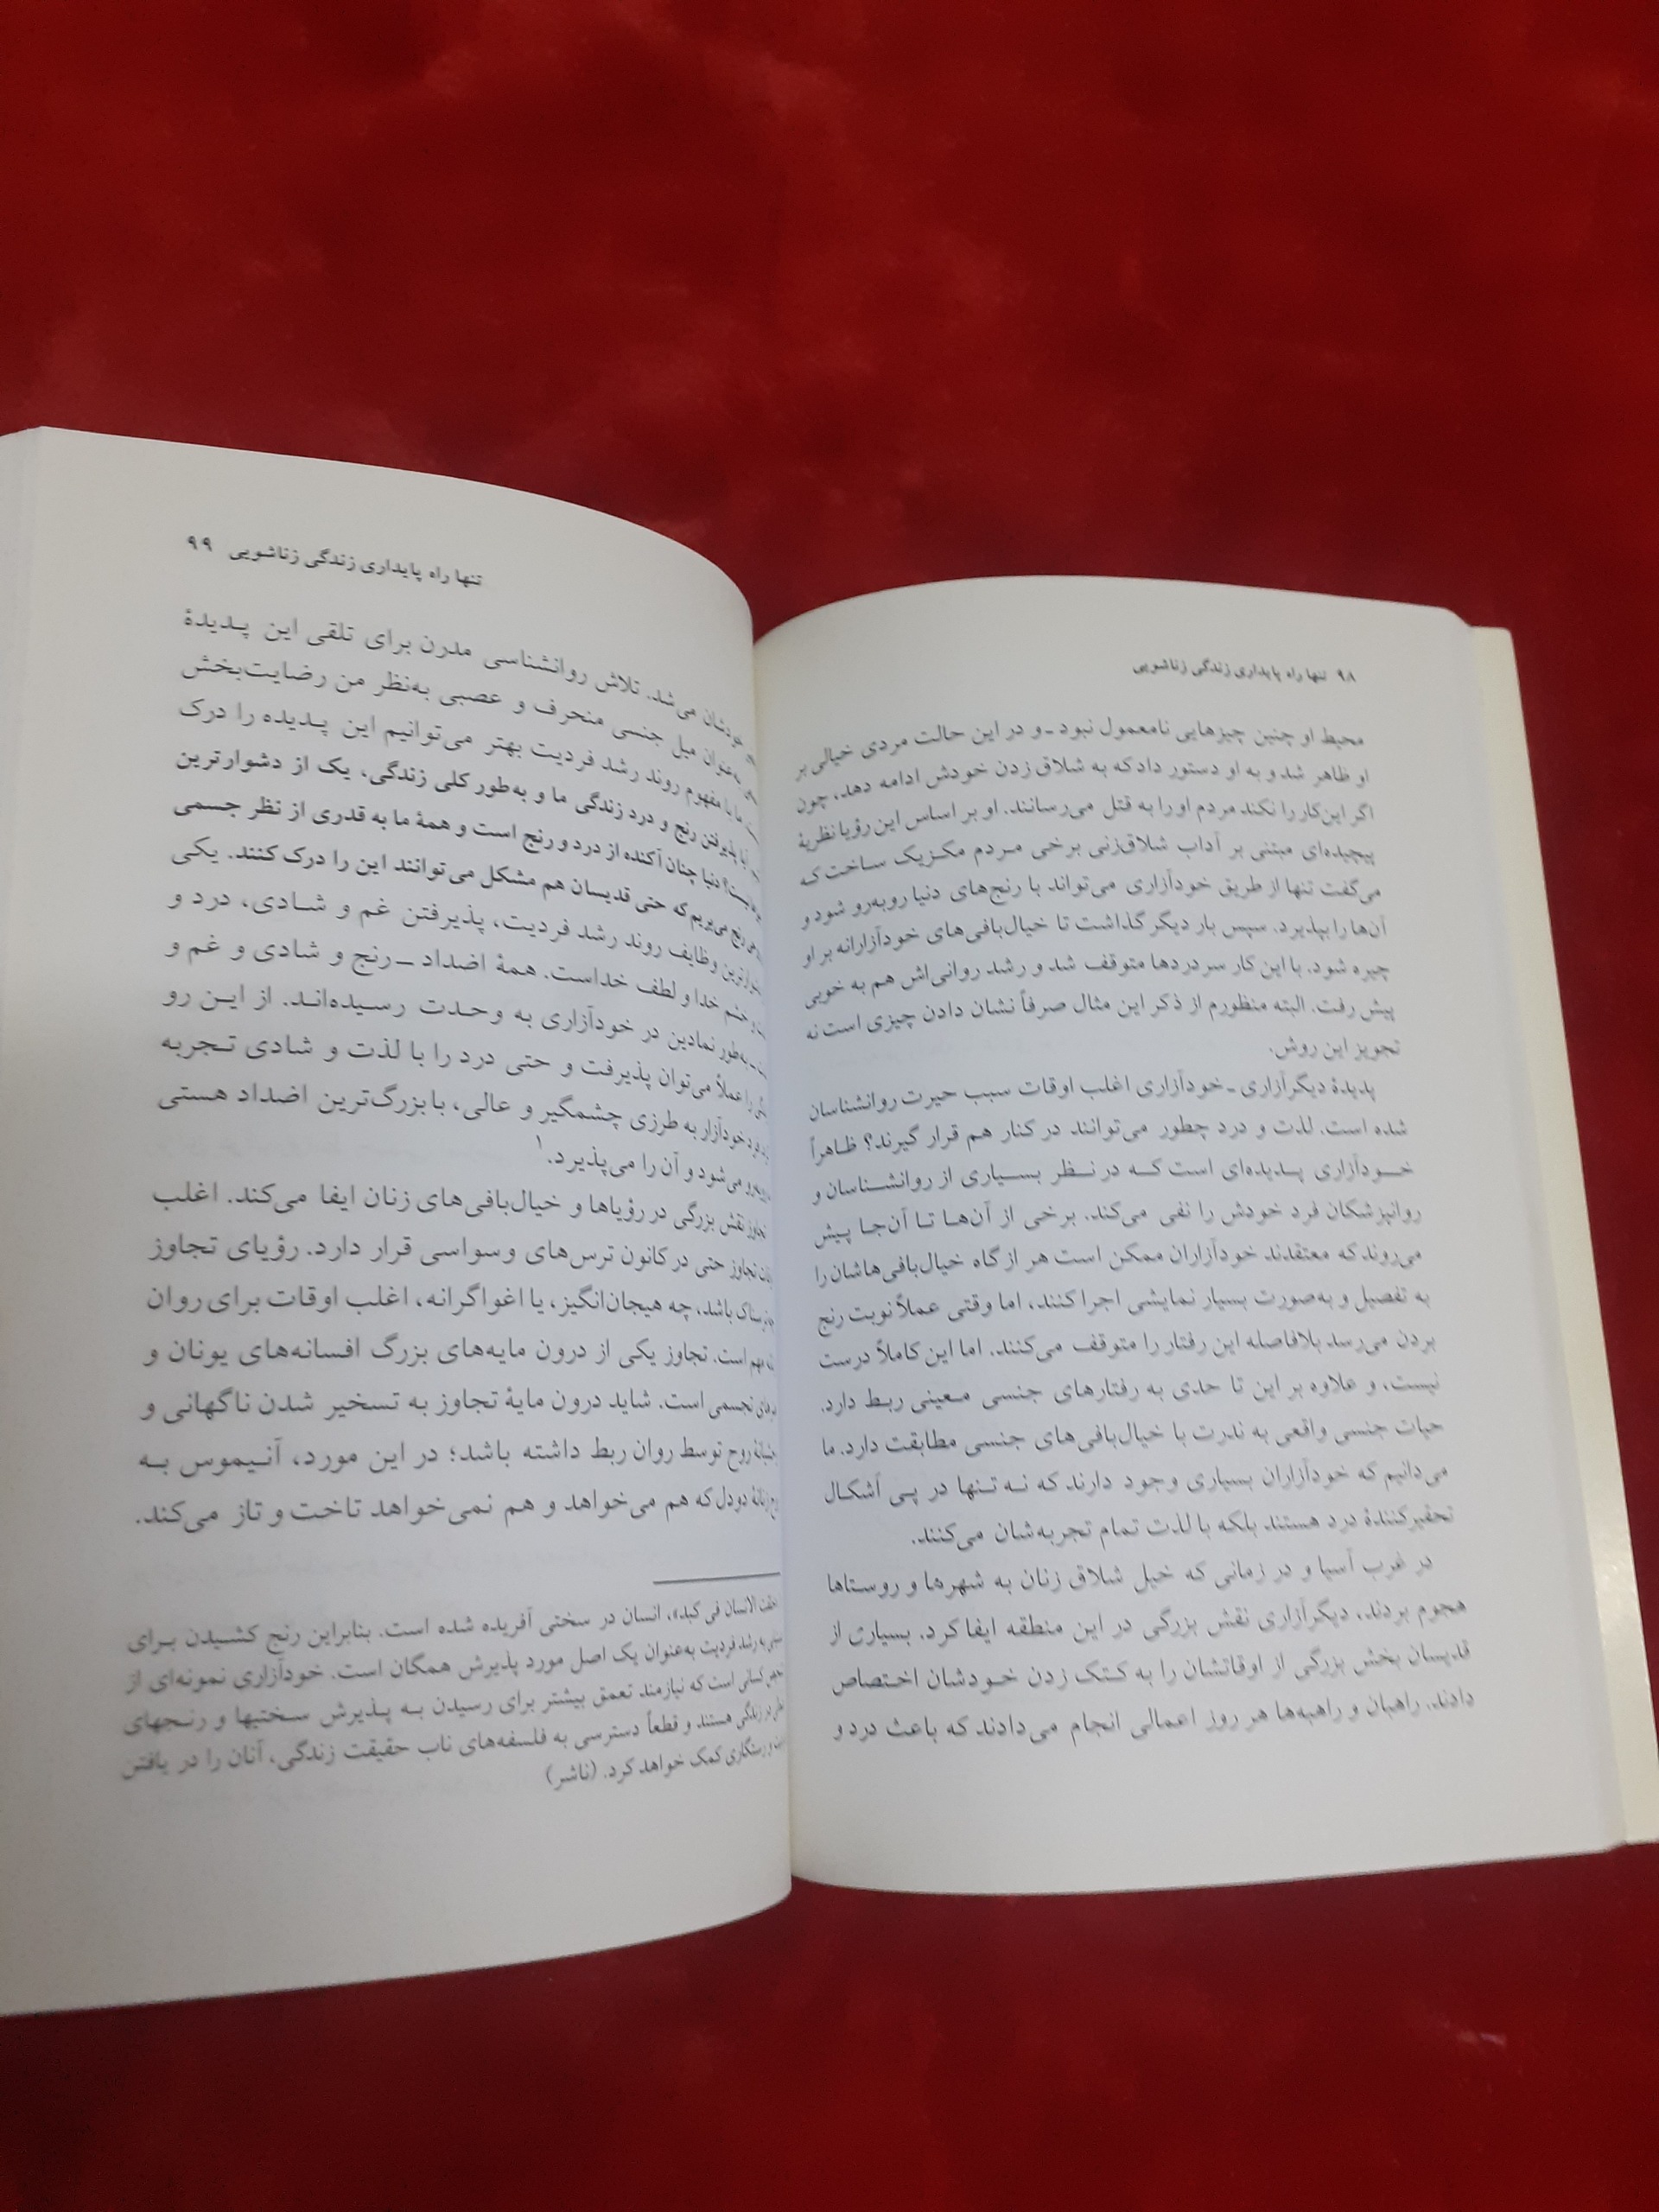 ۹۸ تنها راه پایداری زندگی زناشویی
محیط او چنین چیزهایی نامعمول نبود ـ و در این حالت مردی خیالی بر
او ظاهر شد و به او دستور داد که به شلاق زدن خودش ادامه دهد، چون
اگر این‌کار را نکند مردم او را به قتل می‌رسانند. او بر اساس این رؤیا نظریهٔ
پیچیده‌ای مبتنی بر آداب شلاق‌زنی برخی مردم مکزیک ساخت که
می‌گفت تنها از طریق خودآزاری می‌تواند با رنج‌های دنیا روبه‌رو شود و
آن‌ها را بپذیرد. سپس بار دیگر گذاشت تا خیال‌بافی‌های خودآزارانه بر او
چیره شود. با این کار سردردها متوقف شد و رشد روانی‌اش هم به خوبی
پیش رفت. البته منظورم از ذکر این مثال صرفاً نشان دادن چیزی است نه
تجویز این روش.
پدیدهٔ دیگرآزاری ـ خودآزاری اغلب اوقات سبب حیرت روانشناسان
شده است. لذت و درد چطور می‌توانند در کنار هم قرار گیرند؟ ظاهراً
خودآزاری پدیده‌ای است که در نظر بسیاری از روانشناسان و
روانپزشکان فرد خودش را نفی می‌کند. برخی از آن‌ها تا آن‌جا پیش
می‌روند که معتقدند خودآزاران ممکن است هر از گاه خیال‌بافی‌هاشان را
به تفصیل و به‌صورت بسیار نمایشی اجرا کنند، اما وقتی عملاً نوبت رنج
بردن می‌رسد بلافاصله این رفتار را متوقف می‌کنند. اما این کاملاً درست
نیست، و علاوه بر این تا حدی به رفتارهای جنسی معینی ربط دارد.
حیات جنسی واقعی به ندرت با خیال‌بافی‌های جنسی مطابقت دارد. ما
می‌دانیم که خودآزاران بسیاری وجود دارند که نه تنها در پی اَشکال
تحقیرکنندهٔ درد هستند بلکه با لذت تمام تجربه‌شان می‌کنند.
در غرب آسیا و در زمانی که خیل شلاق زنان به شهرها و روستاها
هجوم بردند، دیگرآزاری نقش بزرگی در این منطقه ایفا کرد. بسیاری از
قدیسان بخش بزرگی از اوقاتشان را به کتک زدن خودشان اختصاص
دادند. راهبان و راهبه‌ها هر روز اعمالی انجام می‌دادند که باعث درد و
تنها راه پایداری زندگی زناشویی ۹۹
خودشان می‌شد. تلاش روانشناسی مدرن برای تلقی این پدیدهٔ
به‌عنوان میل جنسی منحرف و عصبی به‌نظر من رضایت‌بخش
ما با مفهوم روند رشد فردیت بهتر می‌توانیم این پدیده را درک
آیا پذیرفتن رنج و درد زندگی ما و به‌طور کلی زندگی، یک از دشوارترین
نیست؟ دنیا چنان آکنده از درد و رنج است و همهٔ ما به قدری از نظر جسمی
رنج می‌بریم که حتی قدیسان هم مشکل می‌توانند این را درک کنند. یکی
وظایف روند رشد فردیت، پذیرفتن غم و شادی، درد و
خشم خدا و لطف خداست. همهٔ اضداد ـ رنج و شادی و غم و
ـ به‌طور نمادین در خودآزاری به وحدت رسیده‌اند. از این رو
را عملاً می‌توان پذیرفت و حتی درد را با لذت و شادی تجربه
خودآزار به طرزی چشمگیر و عالی، با بزرگ‌ترین اضداد هستی
می‌شود و آن را می‌پذیرد.۱
تجاوز نقش بزرگی در رؤیاها و خیال‌بافی‌های زنان ایفا می‌کند. اغلب
تجاوز حتی در کانون ترس‌های وسواسی قرار دارد. رؤیای تجاوز
باشد، چه هیجان‌انگیز، یا اغواگرانه، اغلب اوقات برای روان
مهم است. تجاوز یکی از درون مایه‌های بزرگ افسانه‌های یونان و
تجسمی است. شاید درون مایهٔ تجاوز به تسخیر شدن ناگهانی و
روح توسط روان ربط داشته باشد؛ در این مورد، آنیموس به
دودل که هم می‌خواهد و هم نمی‌خواهد تاخت و تاز می‌کند.
الانسان فی کبد»، انسان در سختی آفریده شده است. بنابراین رنج کشیدن برای
به رشد فردیت به‌عنوان یک اصل مورد پذیرش همگان است. خودآزاری نمونه‌ای از
کسانی است که نیازمند تعمق بیشتر برای رسیدن به پذیرش سختیها و رنجهای
در زندگی هستند و قطعاً دسترسی به فلسفه‌های ناب حقیقت زندگی، آنان را در یافتن
و رستگاری کمک خواهد کرد. (ناشر)